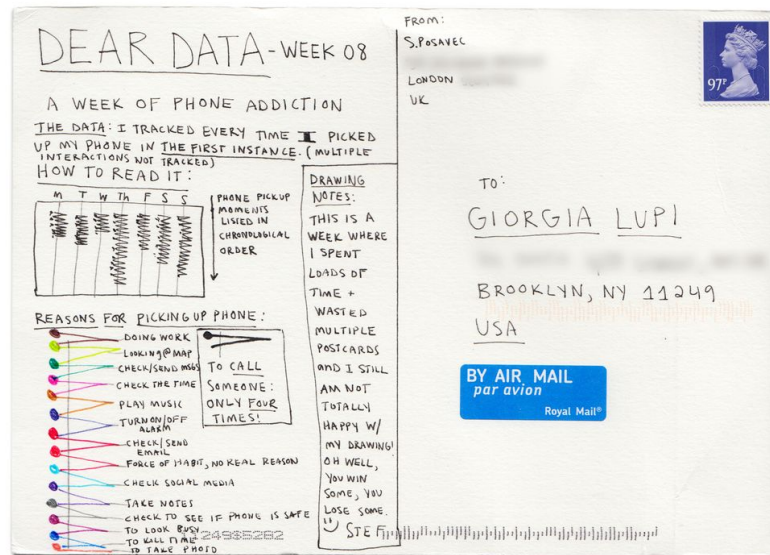 DEAR DATA - WEEK 08
A WEEK OF PHONE ADDICTION
THE DATA: I TRACKED EVERY TIME I PICKED
UP MY PHONE IN THE FIRST INSTANCE. (MULTIPLE
INTERACTIONS NOT TRACKED)
HOW TO READ IT:
M T W Th F S S
PHONE PICKUP
MOMENTS
LISTED IN
CHRONOLOGICAL
ORDER
REASONS FOR PICKING UP PHONE:
DOING WORK
LOOKING @ MAP
CHECK/SEND MSGS
CHECK THE TIME
PLAY MUSIC
TURN ON/OFF
ALARM
CHECK/SEND
EMAIL
FORCE OF HABIT, NO REAL REASON
CHECK SOCIAL MEDIA
TAKE NOTES
CHECK TO SEE IF PHONE IS SAFE
TO LOOK BUSY
TO KILL TIME
TO TAKE PHOTO
TO CALL
SOMEONE:
ONLY FOUR
TIMES!
DRAWING
NOTES:
THIS IS A
WEEK WHERE
I SPENT
LOADS OF
TIME +
WASTED
MULTIPLE
POSTCARDS
AND I STILL
AM NOT
TOTALLY
HAPPY W/
MY DRAWING!
OH WELL,
YOU WIN
SOME, YOU
LOSE SOME.
STEF
FROM:
S. POSAVEC
LONDON
UK
97P
TO:
GIORGIA LUPI
BROOKLYN, NY 11249
USA
BY AIR MAIL
par avion
Royal Mail®